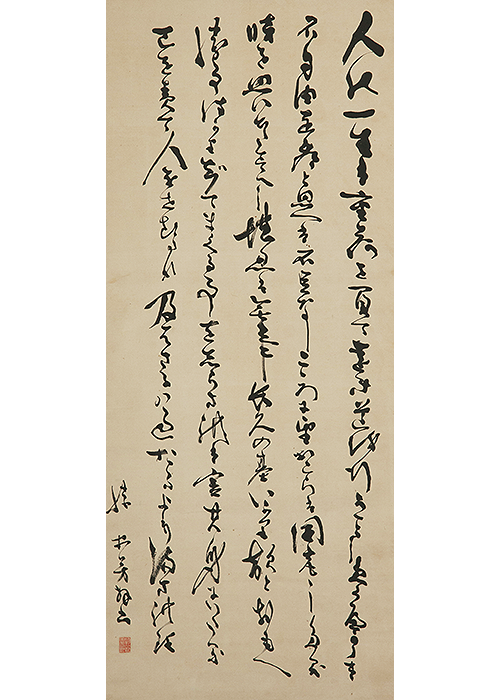 人の一生は重荷を負て遠き道を行かことし急くへからす
不自由を常と思へは不足なしこころに望おこらは困窮したる
時を思ひ出すへし堪忍は無事長久の基いかりは敵とおもへ
勝事はかり知てまくる事をしらされは害其身にいたるお
のれを責て人をせむるな及はさるは過たるよりまされり